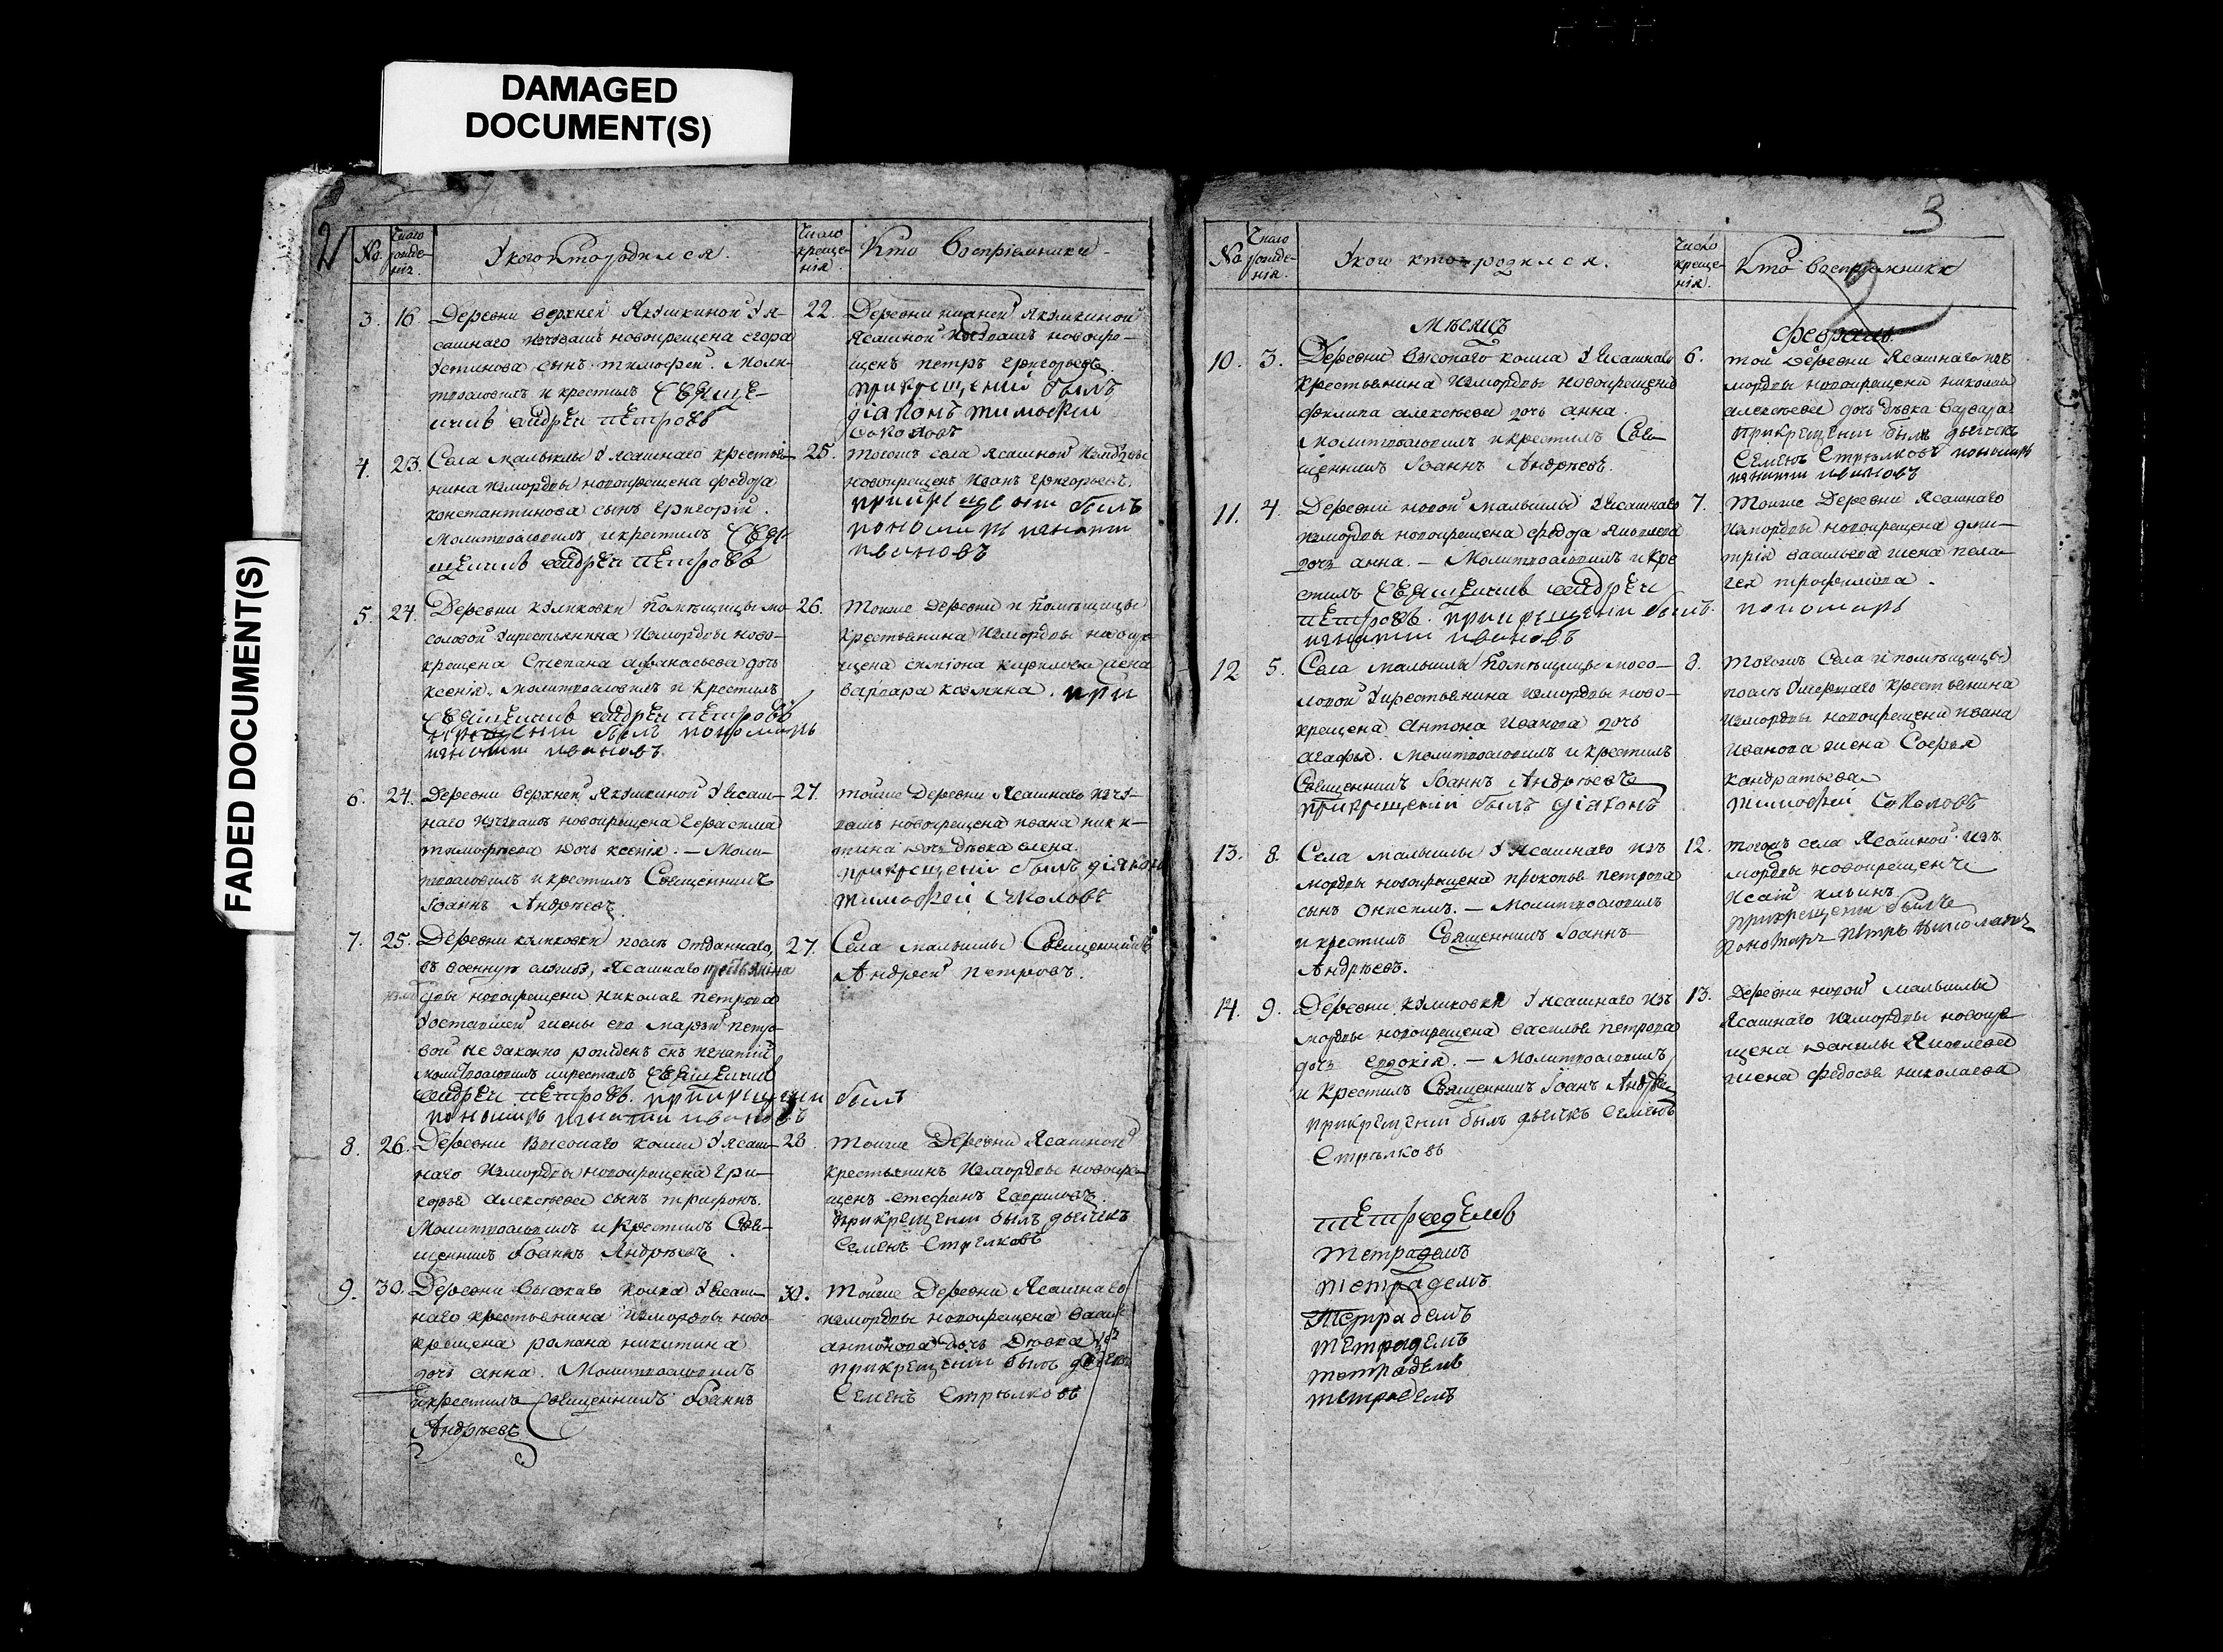 DAMAGED
DOCUMENT(S)
FADED DOCUMENT(S)
2
№
Число рожде-нія.
У кого кто родился.
Число креще-нія.
Кто воспріемники
3. 16
Деревни верхней Якушкиной У я-
сашнаго изчувашъ новокрещена егора
Устинова сынъ тимофей. Моли-
твословилъ и крестилъ Свяще-
нникъ андреи петровъ
22.
Деревни нижней Якушкиной
Ясашной изчувашъ новокре-
щенъ петръ григорьевъ.
прикрещений былъ
діаконъ тимофеи
Соколовъ
4. 23.
Села малыклы У ясашнаго крестья-
нина измордвы новокрещена федора
константинова сынъ григорій.
Молитвословилъ и крестилъ Свя-
щенникъ андреи петровъ
25.
тогожъ села ясашной измордвы
новокрещенъ Иванъ григорьевъ.
прикрещении былъ
пономарь игнатии
ивановъ
5. 24.
Деревни куликовки Помѣщицы мо-
соловой Укрестьянина Измордвы ново-
крещена Степана афанасьева дочь
ксенія. молитвословилъ и крестилъ
Священникъ андреи петровъ
крещении былъ пономарь
игнатии ивановъ
26.
тоиже деревни и Помѣщицы
крестьянина Измордвы новокре-
щена симіона кирилова жена
варвара козмина. при
6. 24.
Деревни верхней Якушкиной У ясаш-
наго изчувашъ новокрещена герасима
тимофеева дочь ксенія. — Моли-
твословилъ и крестилъ Священникъ
Іоаннъ Андрѣевъ.
27.
тоиже Деревни Ясашнаго изчу-
вашъ новокрещена ивана ники-
тина дочь дѣвка елена.
прикрещеніи былъ діяконъ
тимофей Соколовъ
7. 25.
Деревни куликовки послѣ отданнаго,
въ военную службу, Ясашнаго крестьянина
измордвы новокрещена николая петрова
Уоставшей жены его марфы петро-
вой не законно рожденъ сынъ игнатий
молитвословилъ икрестилъ Священникъ
андреи петровъ. прикрещении былъ
пономарь игнатии ивановъ
27.
Села малыклы Священникъ
Андреи петровъ.
8. 26.
Деревни высокаго колка У ясаш-
наго Измордвы новокрещена гри-
горья алексѣева сынъ трифонъ.
Молитвословилъ и крестилъ Свя-
щенникъ Іоаннъ Андрѣевъ.
28.
тоиже Деревни Ясашной
крестьянинъ Измордвы новокре-
щенъ стефанъ гавриловъ.
прикрещении былъ дьячекъ
Семенъ Стрелковъ
9. 30.
Деревни высокаго колка У ясаш-
наго крестьянина Измордвы ново-
крещена романа никитина
дочь анна. Молитвословилъ
икрестилъ Священникъ Іоаннъ
Андрѣевъ
30.
тоиже Деревни Ясашнаго
измордвы новокрещена
антонова дочь Дѣвка
прикрещении былъ дьячекъ
Семенъ Стрѣлковъ
3
№
Число рожде-нія.
У кого кто родился.
Число креще-нія.
Кто воспріемники
Мѣсяцъ
февраль
10. 3.
Деревни высокаго колка У Ясашнаго
крестьянина Измордвы новокрещена
филипа алексѣева дочь анна.
молитвословилъ и крестилъ Свя-
щенникъ Іоаннъ Андрѣевъ.
6.
той деревни Ясашнаго из
мордвы новокрещена николая
алексѣева дочь дѣвка варвара
прикрещении былъ дьячекъ
Семенъ Стрѣлковъ пономарь
игнатии ивановъ
11. 4.
Деревни новой малыклы У ясашнаго
измордвы новокрещена федора яковлева
дочь анна. — Молитвословилъ и кре
стилъ Священникъ андреи
петровъ. прикрещении былъ пономарь
игнатии ивановъ
7.
Тоиже Деревни Ясашнаго
Измордвы новокрещена дми-
трія васильева жена пела-
гея трофимова.
12 5.
Села малыклы Помѣщицы мосо-
ловой Укрестьянина измордвы ново-
крещена антона Иванова дочь
агафья. молитвословилъ и крестилъ
Священникъ Іоаннъ Андрѣевъ
прикрещеніи былъ діаконъ
8.
тогожъ Села и помѣщицы
послѣ Умершаго крестьянина
Измордвы новокрещена ивана
Иванова жена Софья
кандратьева
тимофей Соколовъ
13. 8.
Села малыклы У Ясашнаго изъ
мордвы новокрещена прокопья петрова
сынъ онисимъ. — Молитвословилъ
и крестилъ Священникъ Іоаннъ
Андрѣевъ.
12.
тогожъ села Ясашной изъ
мордвы новокрещенъ
Исаій ильинъ
прикрещении былъ
Пономарь петръ
14. 9.
Деревни куликовки У ясашнаго изъ
мордвы новокрещена василья петрова
дочь евдокія. — Молитвословилъ
и крестилъ Священникъ Іоанъ Андреи
прикрещении былъ дьячекъ Семенъ
Стрѣлковъ
13.
Деревни новой малыклы
Ясашнаго измордвы новокре
щена данилы Яковлева
жена федосья николаева
тетрадемъ
тетрадемъ
тетрадемъ
тетрадемъ
тетрадемъ
тетрадемъ
тетрадемъ